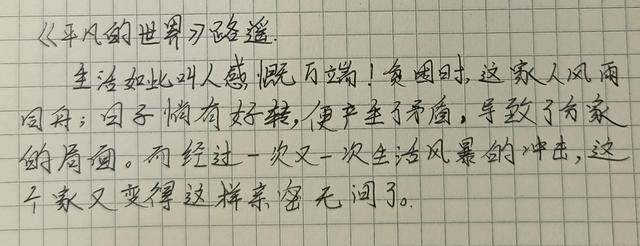 《平凡的世界》路遥.
生活如此叫人感慨万端！贫困时,这家人风雨
同舟；日子稍有好转,便产生了矛盾,导致了分家
的局面。而经过一次又一次生活风暴的冲击,这
个家又变得这样亲密无间了。